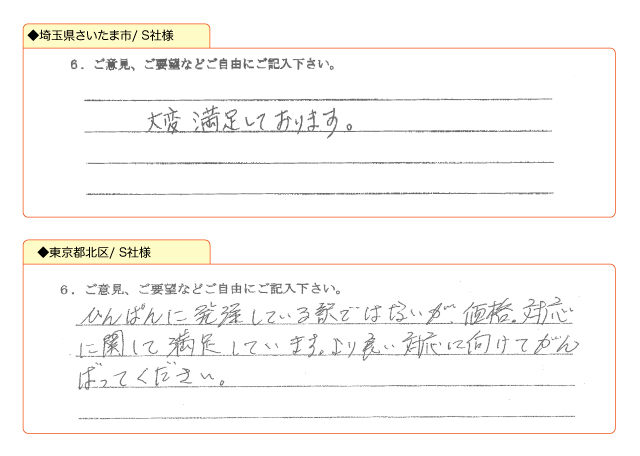 ◆埼玉県さいたま市/ S社様
6．ご意見、ご要望などご自由にご記入下さい。
大変満足しております。
◆東京都北区/ S社様
6．ご意見、ご要望などご自由にご記入下さい。
ひんぱんに発注している訳ではないが、価格。対応
に関して満足しています。より良い対応に向けてがん
ばってください。